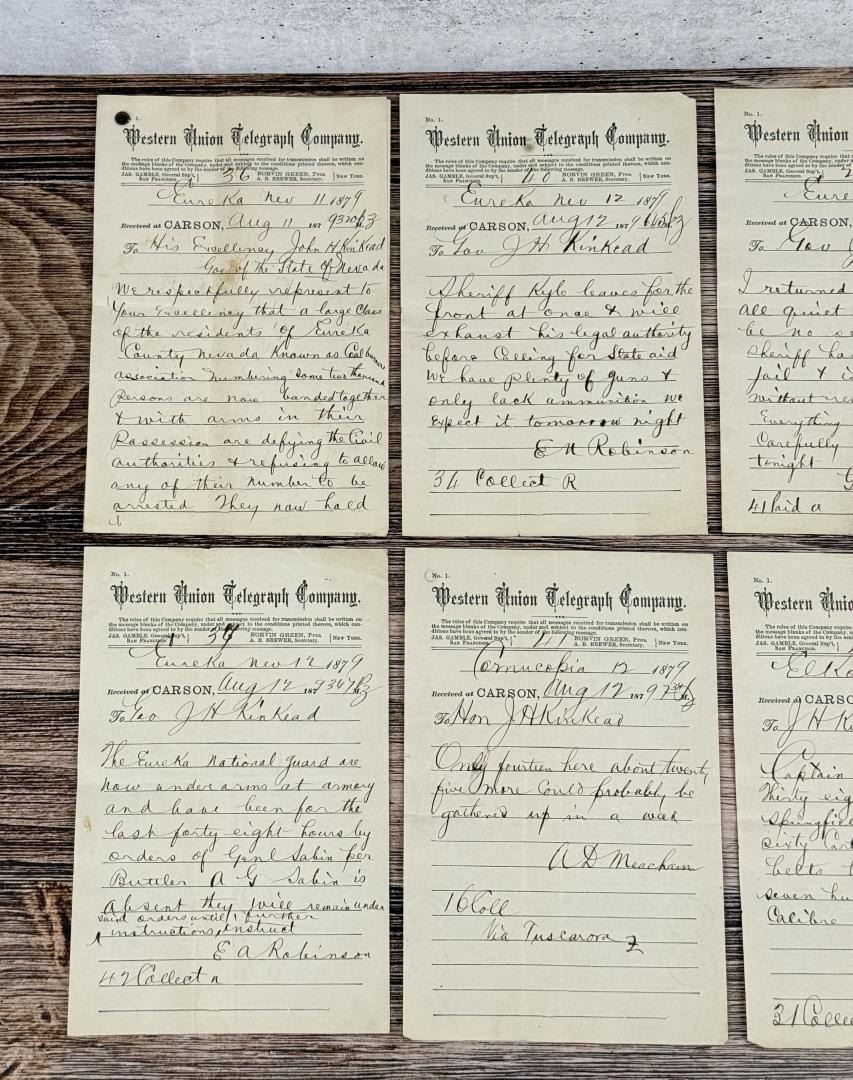 No. 1.
Western Union Telegraph Company.
The rules of this Company require that all messages received for transmission shall be written on
the message blanks of the Company, under and subject to the conditions printed thereon, which con-
ditions have been agreed to by the sender of the following message.
JAS. GAMBLE, General Sup't, NORVIN GREEN, Pres.
SAN FRANCISCO. A. R. BREWER, Secretary. NEW YORK.
36
Eureka Nov 11 1879
Received at CARSON, Aug 11 187 9
To His Excellency John H Kinkead
Gov of the State of Nevada
We respectfully represent to
Your Excellency that a large Class
of the residents of Eureka
County Nevada Known as Coal burners
association numbering some two thousand
persons are now banded together
& with arms in their
Possession are defying the Civil
authorities & refusing to allow
any of their number to be
arrested They now hold
No. 1.
Western Union Telegraph Company.
The rules of this Company require that all messages received for transmission shall be written on
the message blanks of the Company, under and subject to the conditions printed thereon, which con-
ditions have been agreed to by the sender of the following message.
JAS. GAMBLE, General Sup't, NORVIN GREEN, Pres.
SAN FRANCISCO. A. R. BREWER, Secretary. NEW YORK.
40
Eureka Nov 12 1879
Received at CARSON, Aug 12 187 9
To Gov J H Kinkead
Sheriff Kyle leaves for the
front at once & will
exhaust his legal authority
before Calling for State aid
We have plenty of guns &
only lack ammunition we
expect it tomorrow night
E A Robinson
34 Collect R
Western Union
The rules of this Company require that all
the message blanks of the Company, under
ditions have been agreed to by the sender
JAS. GAMBLE, General Sup't,
SAN FRANCISCO.
Received at CARSON,
To Gov
I returned
all quiet
be no
sheriff has
jail &
without
Everything
Carefully
tonight
41 Paid a
No. 1.
Western Union Telegraph Company.
The rules of this Company require that all messages received for transmission shall be written on
the message blanks of the Company, under and subject to the conditions printed thereon, which con-
ditions have been agreed to by the sender of the following message.
JAS. GAMBLE, General Sup't, NORVIN GREEN, Pres.
SAN FRANCISCO. A. R. BREWER, Secretary. NEW YORK.
36
Eureka Nov 12 1879
Received at CARSON, Aug 12 187 9
To Gov J H Kinkead
The Eureka National guard are
now under arms at armory
and have been for the
last forty eight hours by
orders of Genl Sabin per
Buttler A G Sabin is
absent they will remain under
said orders until further
instructions, instruct
E A Robinson
42 Collect n
No. 1.
Western Union Telegraph Company.
The rules of this Company require that all messages received for transmission shall be written on
the message blanks of the Company, under and subject to the conditions printed thereon, which con-
ditions have been agreed to by the sender of the following message.
JAS. GAMBLE, General Sup't, NORVIN GREEN, Pres.
SAN FRANCISCO. A. R. BREWER, Secretary. NEW YORK.
Cornucopia 12 1879
Received at CARSON, Aug 12 187 9
To Hon J H Kinkead
Only fourteen here about twenty
five more Could probably be
gathered up in a week
A D Meacham
16 Coll
Via Tuscarora Z
No. 1.
Western Union
The rules of this Company require that all
the message blanks of the Company, under
ditions have been agreed to by the sender
JAS. GAMBLE, General Sup't,
SAN FRANCISCO.
Received at CARSON
To J H
Captain
Thirty
sixty
belts
seven
Calibre
31